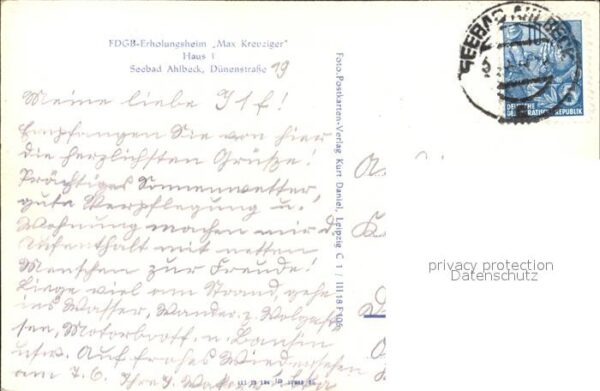 FDGB-Erholungsheim „Max Kreuziger"
Haus 1
Seebad Ahlbeck, Dünenstraße 19
Meine liebe Ilf!
Empfangen Sie von hier
die herzlichsten Grüße!
Prächtiges Sommerwetter,
gute Verpflegung u.
Wohnung machen mir d.
Aufenthalt mit netten
Menschen zur Freude!
Liege viel am Strand, gehe
ins Wasser, Wander. z.
sen, Motorboot u.
usw. Auf frohes Wiedersehen
am 7. 6. Ihre
Foto-Postkarten-Verlag Kurt Daniel, Leipzig C 1 / III 18
SEEBAD AHLBECK
DEUTSCHE
DEMOKRATISCHE REPUBLIK
privacy protection
Datenschutz